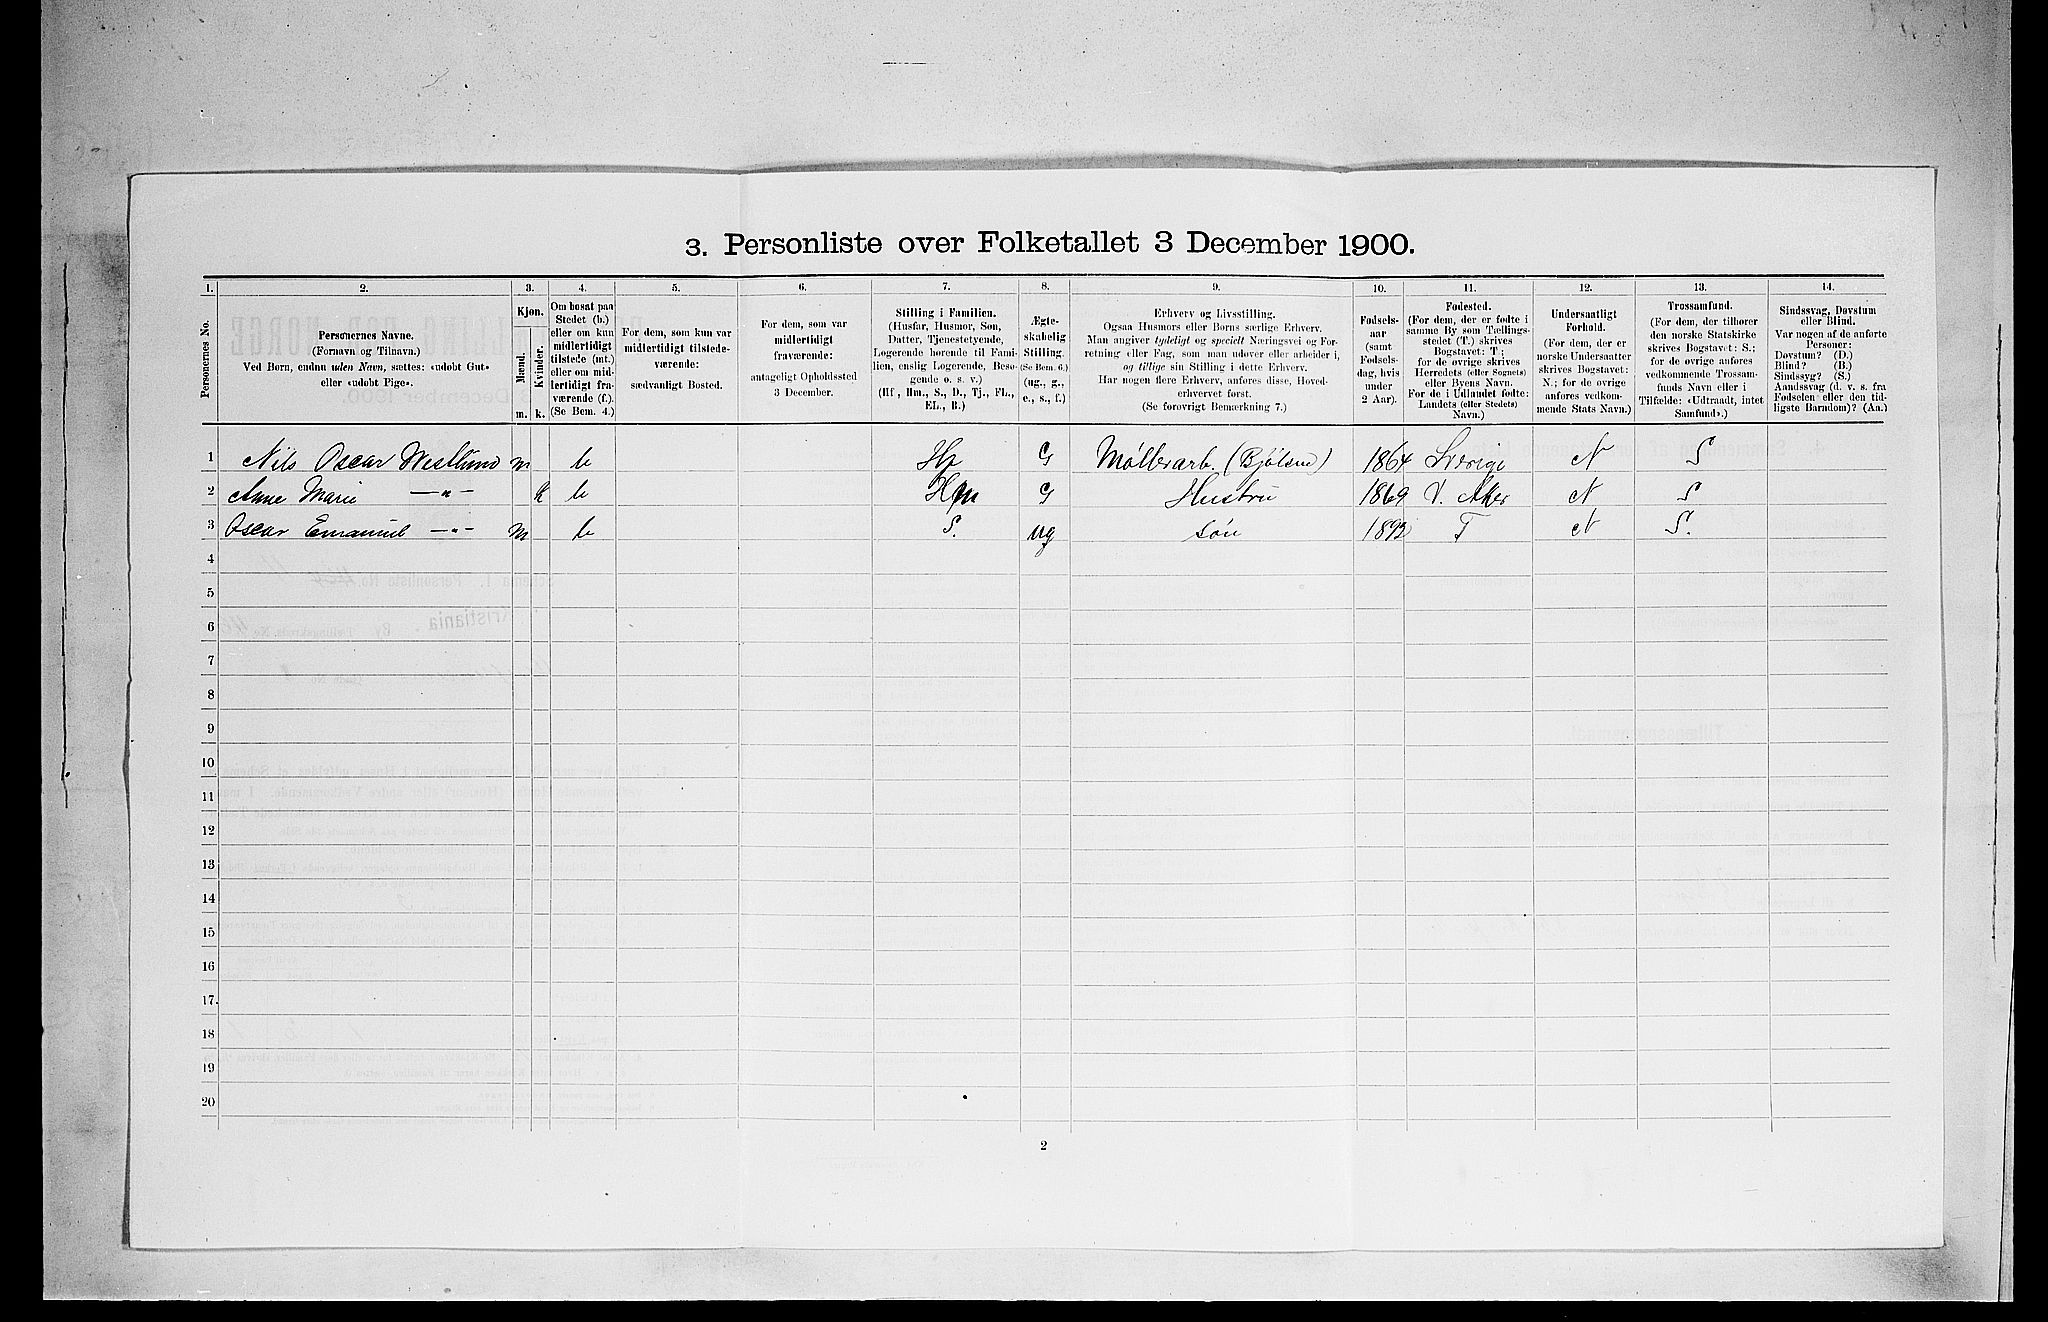 3. Personliste over Folketallet 3 December 1900.
1. 2. 3. 4. 5. 6. 7. 8. 9. 10. 11. 12. 13. 14.
Personernes No.
Personernes Navne.
(Fornavn og Tilnavn.)
Ved Børn, endnu uden Navn, sættes: «udøbt Gut»
eller «udøbt Pige».
Kjøn.
Mænd.
Kvinder.
m. k.
Om bosat paa
Stedet (b.)
eller om kun
midlertidigt
tilstede (mt.)
eller om mid-
lertidigt fra-
værende (f.).
(Se Bem. 4.)
For dem, som kun var
midlertidigt tilstede-
værende:
sædvanligt Bosted.
For dem, som var
midlertidigt
fraværende:
antageligt Opholdssted
3 December.
Stilling i Familien.
(Husfar, Husmor, Søn,
Datter, Tjenestetyende,
Logerende hørende til Fami-
lien, enslig Logerende, Besø-
gende o. s. v.)
(Hf., Hm., S., D., Tj., FL.,
EL., B.)
Ægte-
skabelig
Stilling.
(Se Bem. 6.)
(ug., g.,
e., s., f.)
Erhverv og Livsstilling.
Ogsaa Husmors eller Børns særlige Erhverv.
Man angiver tydeligt og specielt Næringsvei og For-
retning eller Fag, som man udøver eller arbeider i,
og tillige sin Stilling i dette Erhverv.
Har nogen flere Erhverv, anføres disse, Hoved-
erhvervet først.
(Se forøvrigt Bemærkning 7.)
Fødsels-
aar
(samt
Fødsels-
dag, hvis
under
2 Aar).
Fødested.
(For dem, der er fødte i
samme By som Tællings-
stedet (T.) skrives
Bogstavet: T;
for de øvrige skrives
Herredets (eller Sognets)
eller Byens Navn.
For de i Udlandet fødte:
Landets (eller Stedets)
Navn.)
Undersaatligt
Forhold.
(For dem, der er
norske Undersaatter
skrives Bogstavet:
N.; for de øvrige
anføres vedkom-
mende Stats Navn.)
Trossamfund.
(For dem, der tilhører
den norske Statskirke
skrives Bogstavet: S.;
for de øvrige anføres
vedkommende Trossam-
funds Navn eller i
Tilfælde: «Udtraadt, intet
Samfund».)
Sindssvag, Døvstum
eller Blind.
Var nogen af de anførte
Personer:
Døvstum? (D.)
Blind? (B.)
Sindssyg? (S.)
Aandssvag (d. v. s. fra
Fødselen eller den tid-
ligste Barndom)? (Aa.)
1 Nils Oscar Westlund m b Hf G Møllerarb. (Bjølsen) 1864 Sverige N S
2 Anne Marie —"— k b Hm G Hustru 1869 V. Aker N S
3 Oscar Emanuel —"— m b S. ug søn 1892 T N S.
4
5
6
7
8
9
10
11
12
13
14
15
16
17.
18
19
20
2